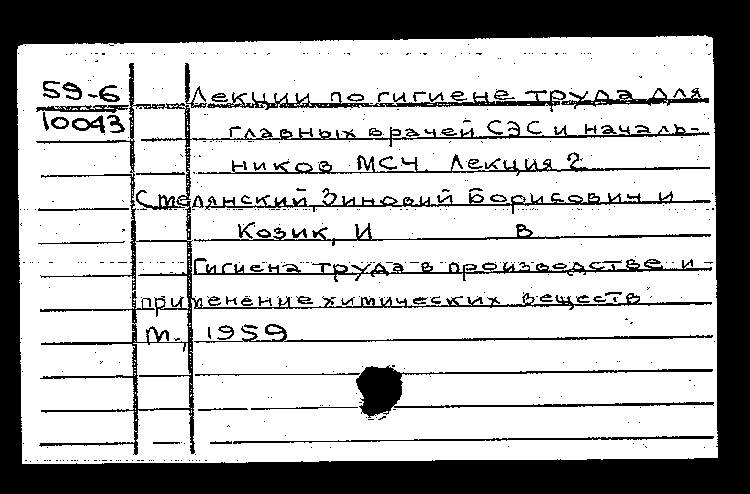 59-6 Лекции по гигиене труда для
10043 главных врачей СЭС и началь-
ников МСЧ. Лекция 2
Смелянский, Зиновий Борисович и
Козик, И В
Гигиена труда в производстве и
применение химических веществ
М., 1959